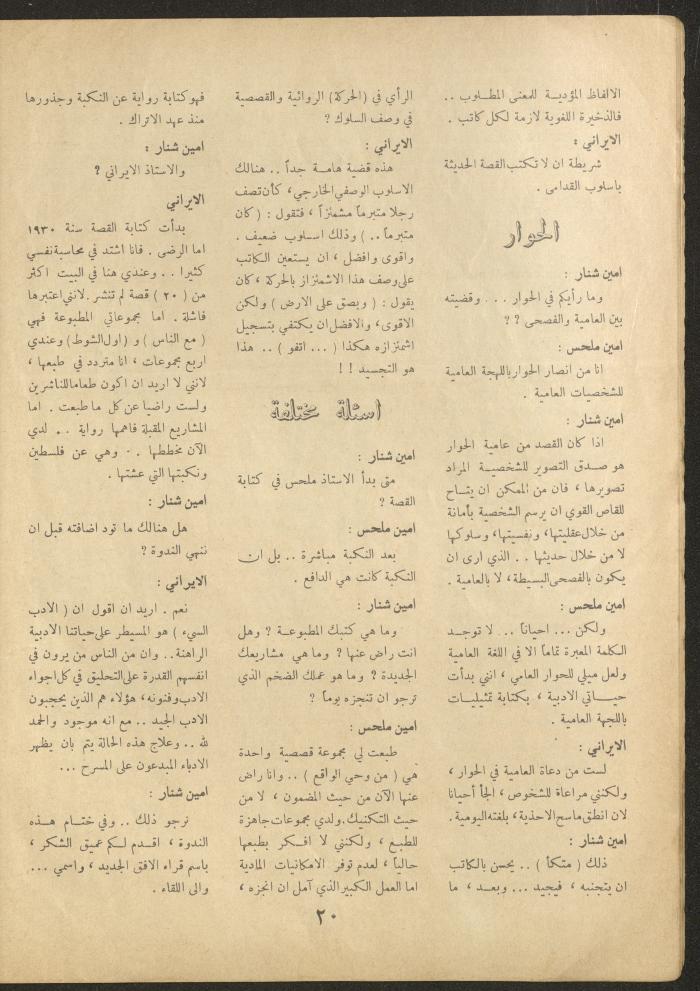 الالفاظ المؤديـة للمعنى المطـلوب ..
فالذخيرة اللغوية لازمة لكل كاتب .
الايراني :
شريطة ان لا تكتب القصة الحديثة
باسلوب القدامى .
الحوار
امين شنار :
وما رأيكم في الحوار ... وقضيته
بين العامية والفصحى ؟ ؟
امين ملحس :
انا من انصار الحوار باللهجة العامية
للشخصيات العامية .
امين شنار :
اذا كان القصد من عامية الحوار
هو صـدق التصوير للشخصيـة المراد
تصويرها ، فان من الممكن ان يتـاح
للقاص القوي ان يرسم الشخصية بأمانة
من خلال عقليتها، ونفسيتها، وسلوكها
لا من خلال حديثها .. الذي ارى ان
يكون بالفصحى البسيطة، لا بالعامية .
امين ملحس :
ولكن ... احياناً ... لا توجـد
الكلمة المعبرة تماماً الا في اللغة العامية
ولعل ميلي للحوار العامي ، انني بدأت
حيـاتي الادبية ، بكتابة تمثيليـات
باللجهة العامية .
الايراني :
لست من دعاة العامية في الحوار ،
ولكنني مراعاة للشخوص ، الجأ أحيانا
لان انطق ماسح الاحذية، بلغته اليومية.
امين شنار :
ذلك ( متكأ ) .. يحسن بالكاتب
ان يتجنبه ، فيجيد ... وبعـد ، ما
الرأي في (الحركة) الروائية والقصصية
في وصف السلوك ؟
الايراني :
هذه قضية هامـة جداً .. هنالك
الاسلوب الوصفي الخارجي، كأن تصف
رجلا متبرماً مشمئزاً ، فتقول : ( كان
متبرماً .. ) وذلك اسلوب ضعيف .
واقوى وافضل ، ان يستعين الكاتب
على وصف هذا الاشمئزاز بالحركة ، كان
يقول : ( وبصق على الارض ) ولكن
الاقوى، والافضل ان يكتفي بتسجيل
اشمئزازه هكذا ( ... اتفو ) .. هذا
هو التجسيد ! !
اسئلة مختلفة
امين شنار :
متى بدأ الاستاذ ملحس في كتابة
القصة ؟
امين ملحس :
بعد النكبة مباشرة .. بل ان
النكبة كانت هي الدافع .
امين شنار :
وما هي كتبك المطبوعـة ؟ وهل
انت راض عنها ؟ وما هي مشاريعك
الجديدة ؟ وما هو عملك الضخم الذي
ترجو ان تنجزه يوماً ؟
امين ملحس :
طبعت لي مجموعة قصصية واحدة
هي ( من وحي الواقع ) .. وانا راض
عنها الآن من حيث المضمون ، لا من
حيث التكنيك.ولدي مجموعات جاهزة
للطبـع ، ولكنني لا افـكر بطبعها
حالياً ، لعدم توفر الامكانيات المادية
اما العمل الكبير الذي آمل ان انجزه ،
فهو كتابة رواية عن النكبة وجذورها
منذ عهد الاتراك .
امين شنار :
والاستاذ الايراني ؟
الايراني
بدأت كتابة القصة سنة ١٩٣٠
اما الرضى . فانا اشتد في محاسبة نفسي
كثيرا .. وعندي هنا في البيت اكثر
من ( ٢٠ ) قصة لم تنشر . لانني اعتبرها
فاشلة . اما مجموعاتي المطبوعة فهي
( مع الناس ) و (اول الشوط) وعندي
اربع مجموعات ، انا متردد في طبعها ،
لانني لا اريد ان اكون طعاما للناشرين
ولست راضيا عن كل ما طبعت . اما
المشاريع المقبلة فاهمها رواية .. لدي
الآن مخططها .. وهي عن فلسطين
ونكبتها التي عشتها .
امين شنار :
هل هنالك ما تود اضافته قبل ان
ننهي الندوة ؟
الايراني :
نعم . اريد ان اقول ان ( الادب
السيء ) هو المسيطر على حياتنا الادبية
الراهنة.. وان من الناس من يرون في
انفسهم القدرة على التحليق في كل اجواء
الادب وفنونه، هؤلاء هم الذين يحجبون
الادب الجيد .. مع انه موجود والحمد
لله .. وعلاج هذه الحالة يتم بان يظهر
الادباء المبدعون على المسرح ...
امين شنار :
نرجو ذلك .. وفي ختـام هـذه
الندوة ، اقـدم لـكم عميق الشكر ،
باسم قراء الافق الجديد ، واسمي ...
والى اللقاء .
٢٠